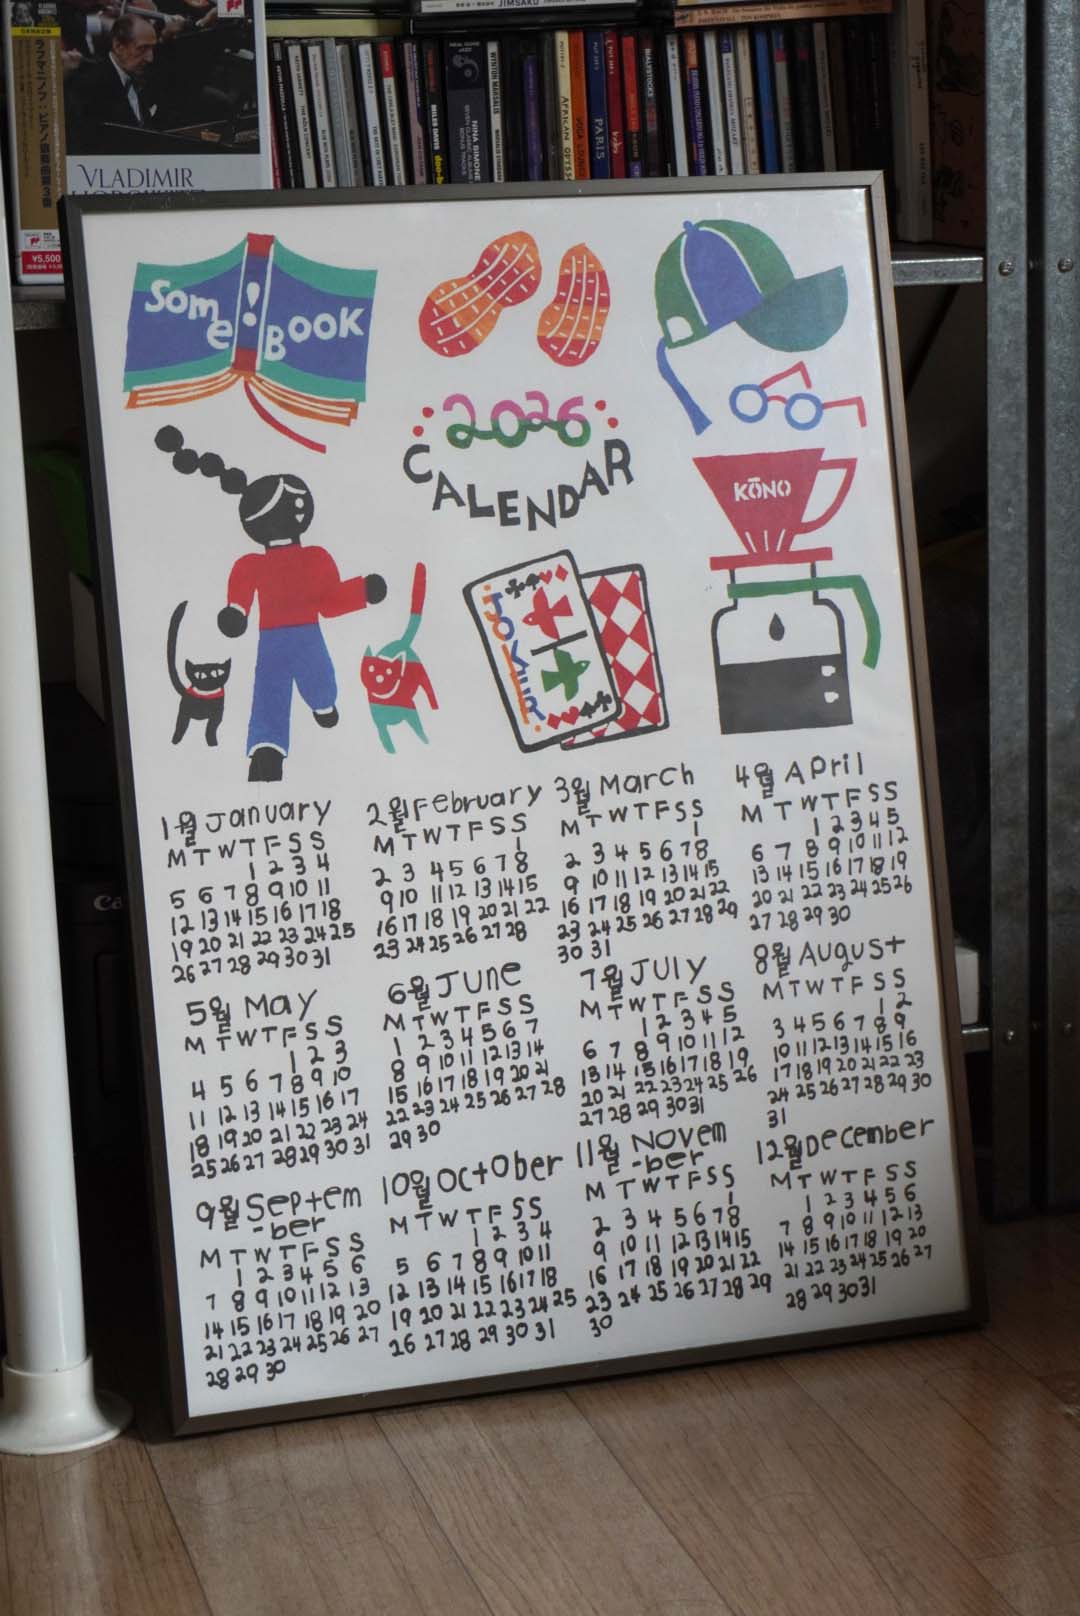 ラフマニノフ・ピアノ協奏曲第3番
¥5,500
VLADIMIR
NINA SIMONE
MILES DAVIS
WYNTON MARSALIS
PARIS
SOME! BOOK
2026
CALENDAR
KŌNO
1월 January
M T W T F S S
1 2 3 4
5 6 7 8 9 10 11
12 13 14 15 16 17 18
19 20 21 22 23 24 25
26 27 28 29 30 31
2월 February
M T W T F S S
1
2 3 4 5 6 7 8
9 10 11 12 13 14 15
16 17 18 19 20 21 22
23 24 25 26 27 28
3월 March
M T W T F S S
1
2 3 4 5 6 7 8
9 10 11 12 13 14 15
16 17 18 19 20 21 22
23 24 25 26 27 28 29
30 31
4월 April
M T W T F S S
1 2 3 4 5
6 7 8 9 10 11 12
13 14 15 16 17 18 19
20 21 22 23 24 25 26
27 28 29 30
5월 May
M T W T F S S
1 2 3
4 5 6 7 8 9 10
11 12 13 14 15 16 17
18 19 20 21 22 23 24
25 26 27 28 29 30 31
6월 June
M T W T F S S
1 2 3 4 5 6 7
8 9 10 11 12 13 14
15 16 17 18 19 20 21
22 23 24 25 26 27 28
29 30
7월 July
M T W T F S S
1 2 3 4 5
6 7 8 9 10 11 12
13 14 15 16 17 18 19
20 21 22 23 24 25 26
27 28 29 30 31
8월 August
M T W T F S S
1 2
3 4 5 6 7 8 9
10 11 12 13 14 15 16
17 18 19 20 21 22 23
24 25 26 27 28 29 30
31
9월 Septem
-ber
M T W T F S S
1 2 3 4 5 6
7 8 9 10 11 12 13
14 15 16 17 18 19 20
21 22 23 24 25 26 27
28 29 30
10월 October
M T W T F S S
1 2 3 4
5 6 7 8 9 10 11
12 13 14 15 16 17 18
19 20 21 22 23 24 25
26 27 28 29 30 31
11월 Novem
-ber
M T W T F S S
1
2 3 4 5 6 7 8
9 10 11 12 13 14 15
16 17 18 19 20 21 22
23 24 25 26 27 28 29
30
12월 December
M T W T F S S
1 2 3 4 5 6
7 8 9 10 11 12 13
14 15 16 17 18 19 20
21 22 23 24 25 26 27
28 29 30 31